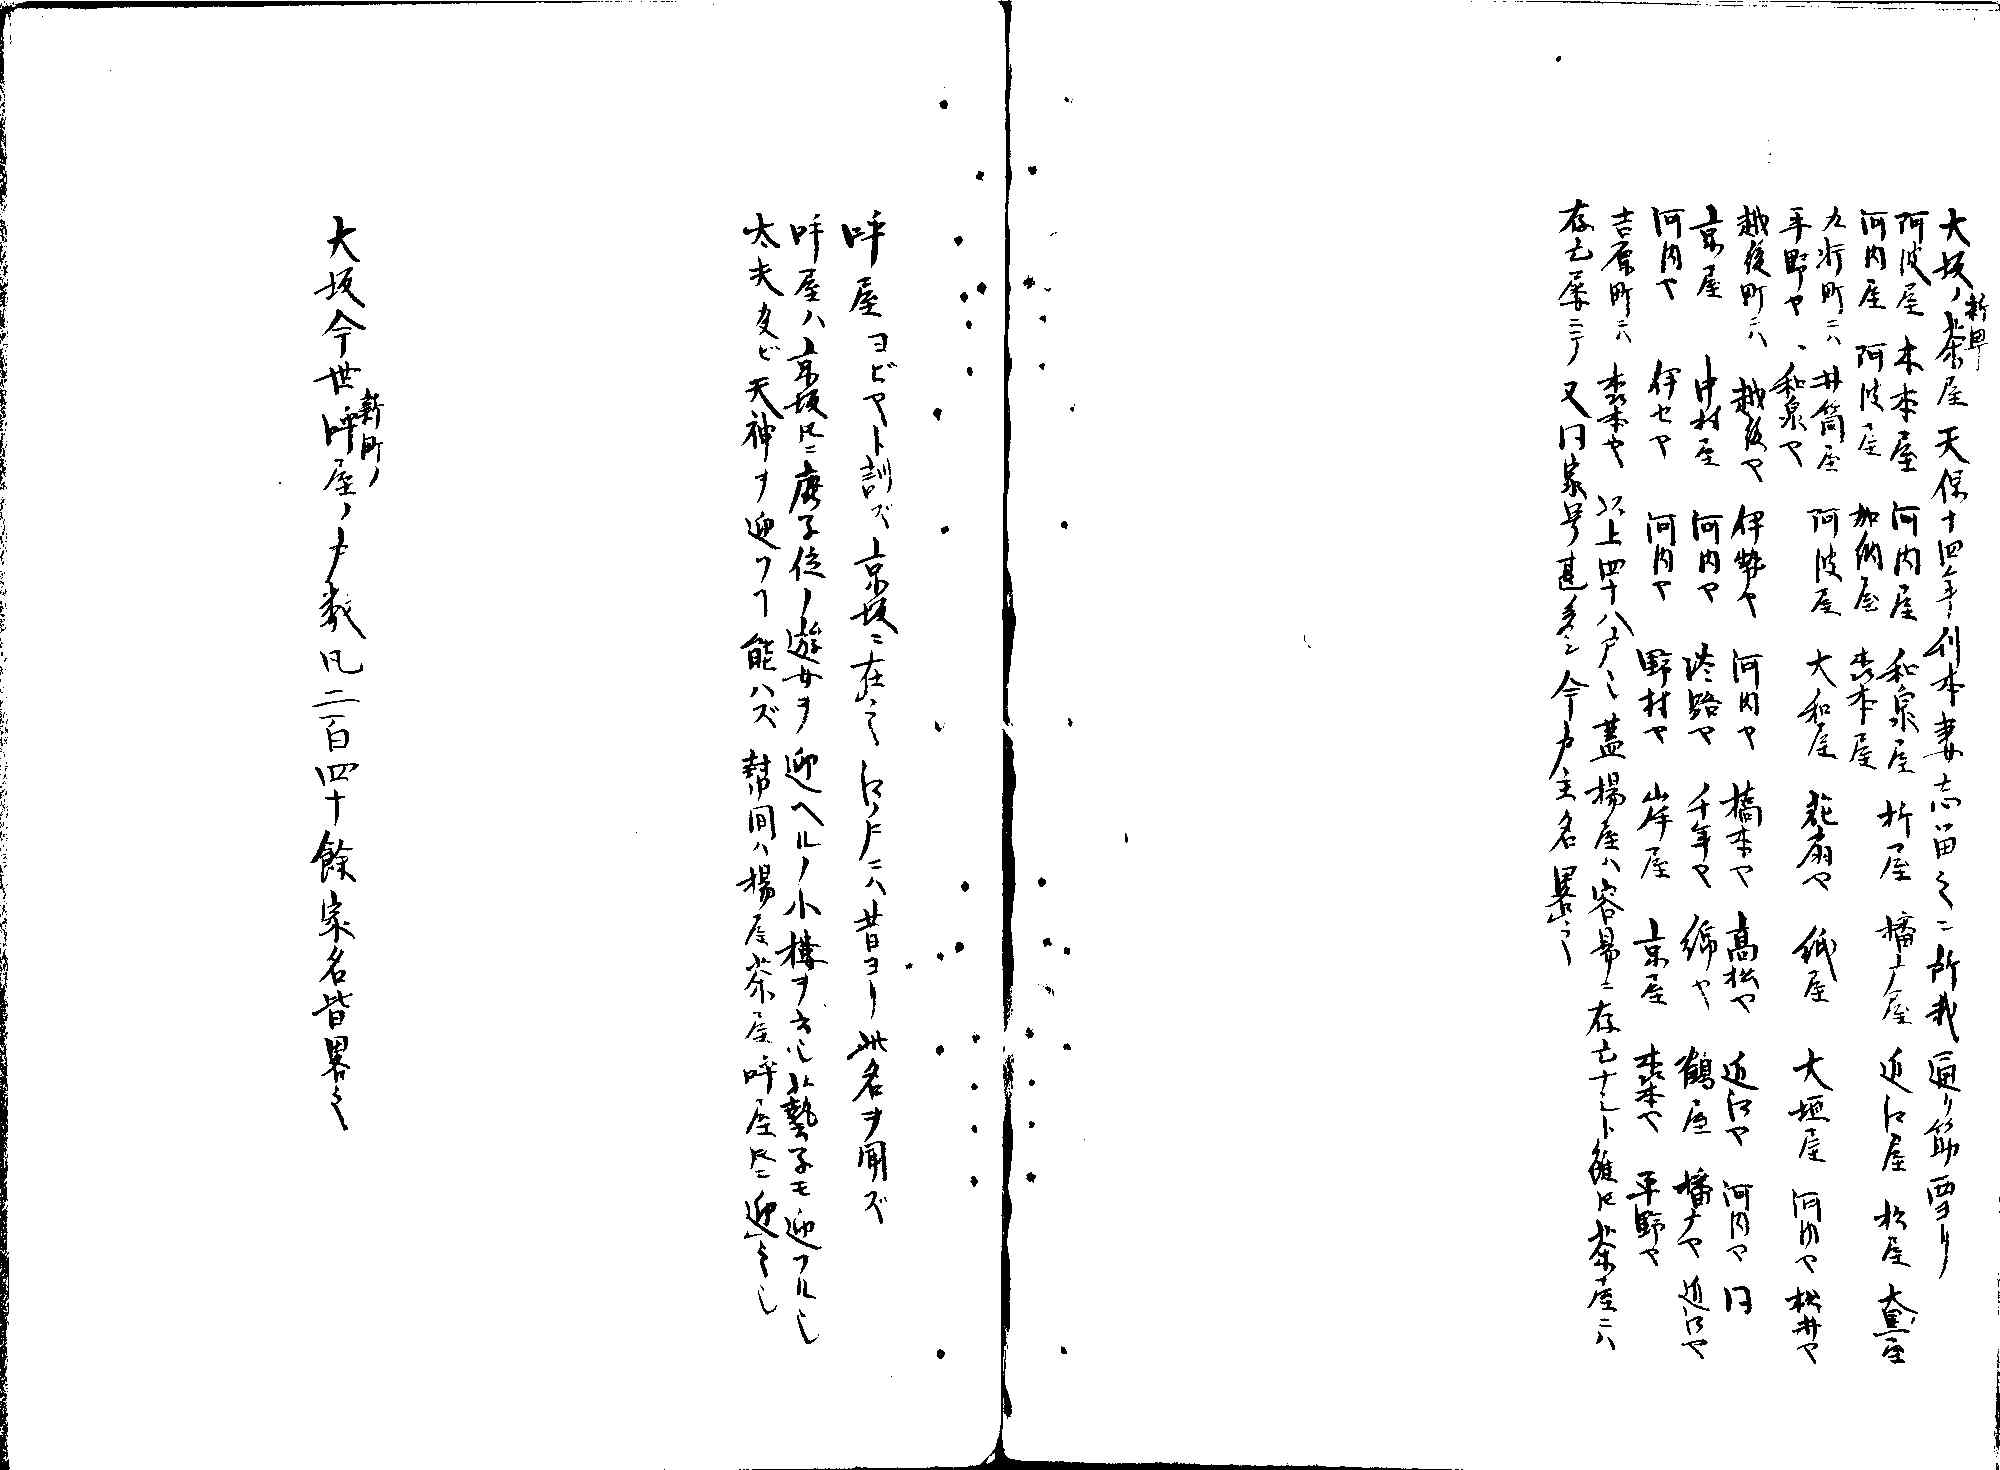 大坂ノ新町茶屋天保十四年刊本妻志留之ニ所載通リ筋西ヨリ
阿波屋 木本屋 河内屋 和泉屋 折屋 橘屋 近江屋 松屋 大黒屋
河内屋 阿波屋 加納屋 木本屋
九軒町ニハ井筒屋 阿波屋 大和屋 花扇ヤ 紙屋 大垣屋 河内ヤ 松井ヤ
平野ヤ 和泉ヤ
越後町ニハ 越後ヤ 伊勢ヤ 河内ヤ 橋本ヤ 高松ヤ 近江ヤ 河内ヤ 同
京屋 中村屋 河内ヤ 淡路ヤ 千年ヤ 綿ヤ 鶴屋 播广ヤ 近江ヤ
河内ヤ 伊セヤ 河内ヤ 野村ヤ 岸屋 京屋 木本ヤ 平野ヤ
吉原町ニハ 木本ヤ 以上四十八戸也 蓋揚屋ハ容易ニ存亡ナシト雖ドモ茶屋ニハ
存亡屡ニテ又同家号甚多シ今戸主名略之
呼屋 ヨビヤト訓ズ京坂ニ在之江戸ニハ昔ヨリ此名ヲ聞ズ
呼屋ハ京坂トモニ鹿子位ノ遊女ヲ迎ヘルノ小樓ヲ云也芸子モ迎フル也
太夫及ビ天神ヲ迎フコト能ハズ幇間ハ揚屋茶屋呼屋トモニ迎之也
大坂今世新町ノ呼屋ノ戸数凡二百四十餘家名皆略之